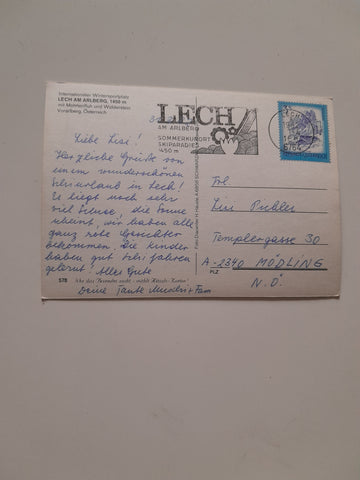 Internationaler Wintersportplatz
LECH AM ARLBERG, 1450 m
mit Mohnenfluh und Wildenstein
Vorarlberg, Österreich
LECH
AM ARLBERG
SOMMERKURORT
SKIPARADIES
1450 m
Liebe Lisi!
Herzliche Grüße von
einem wunderschönen
Schiurlaub in Lech!
Es liegt noch sehr
viel Schnee, die Sonne
scheint, wir haben alle
ganz rote Gesichter
bekommen. Die Kinder
haben gut Schi fahren
gelernt! Alles Gute
Deine Tante + Fam
Frl.
Lisi Pichler
Templergasse 30
A-2340 MÖDLING
N.Ö.
PLZ
578